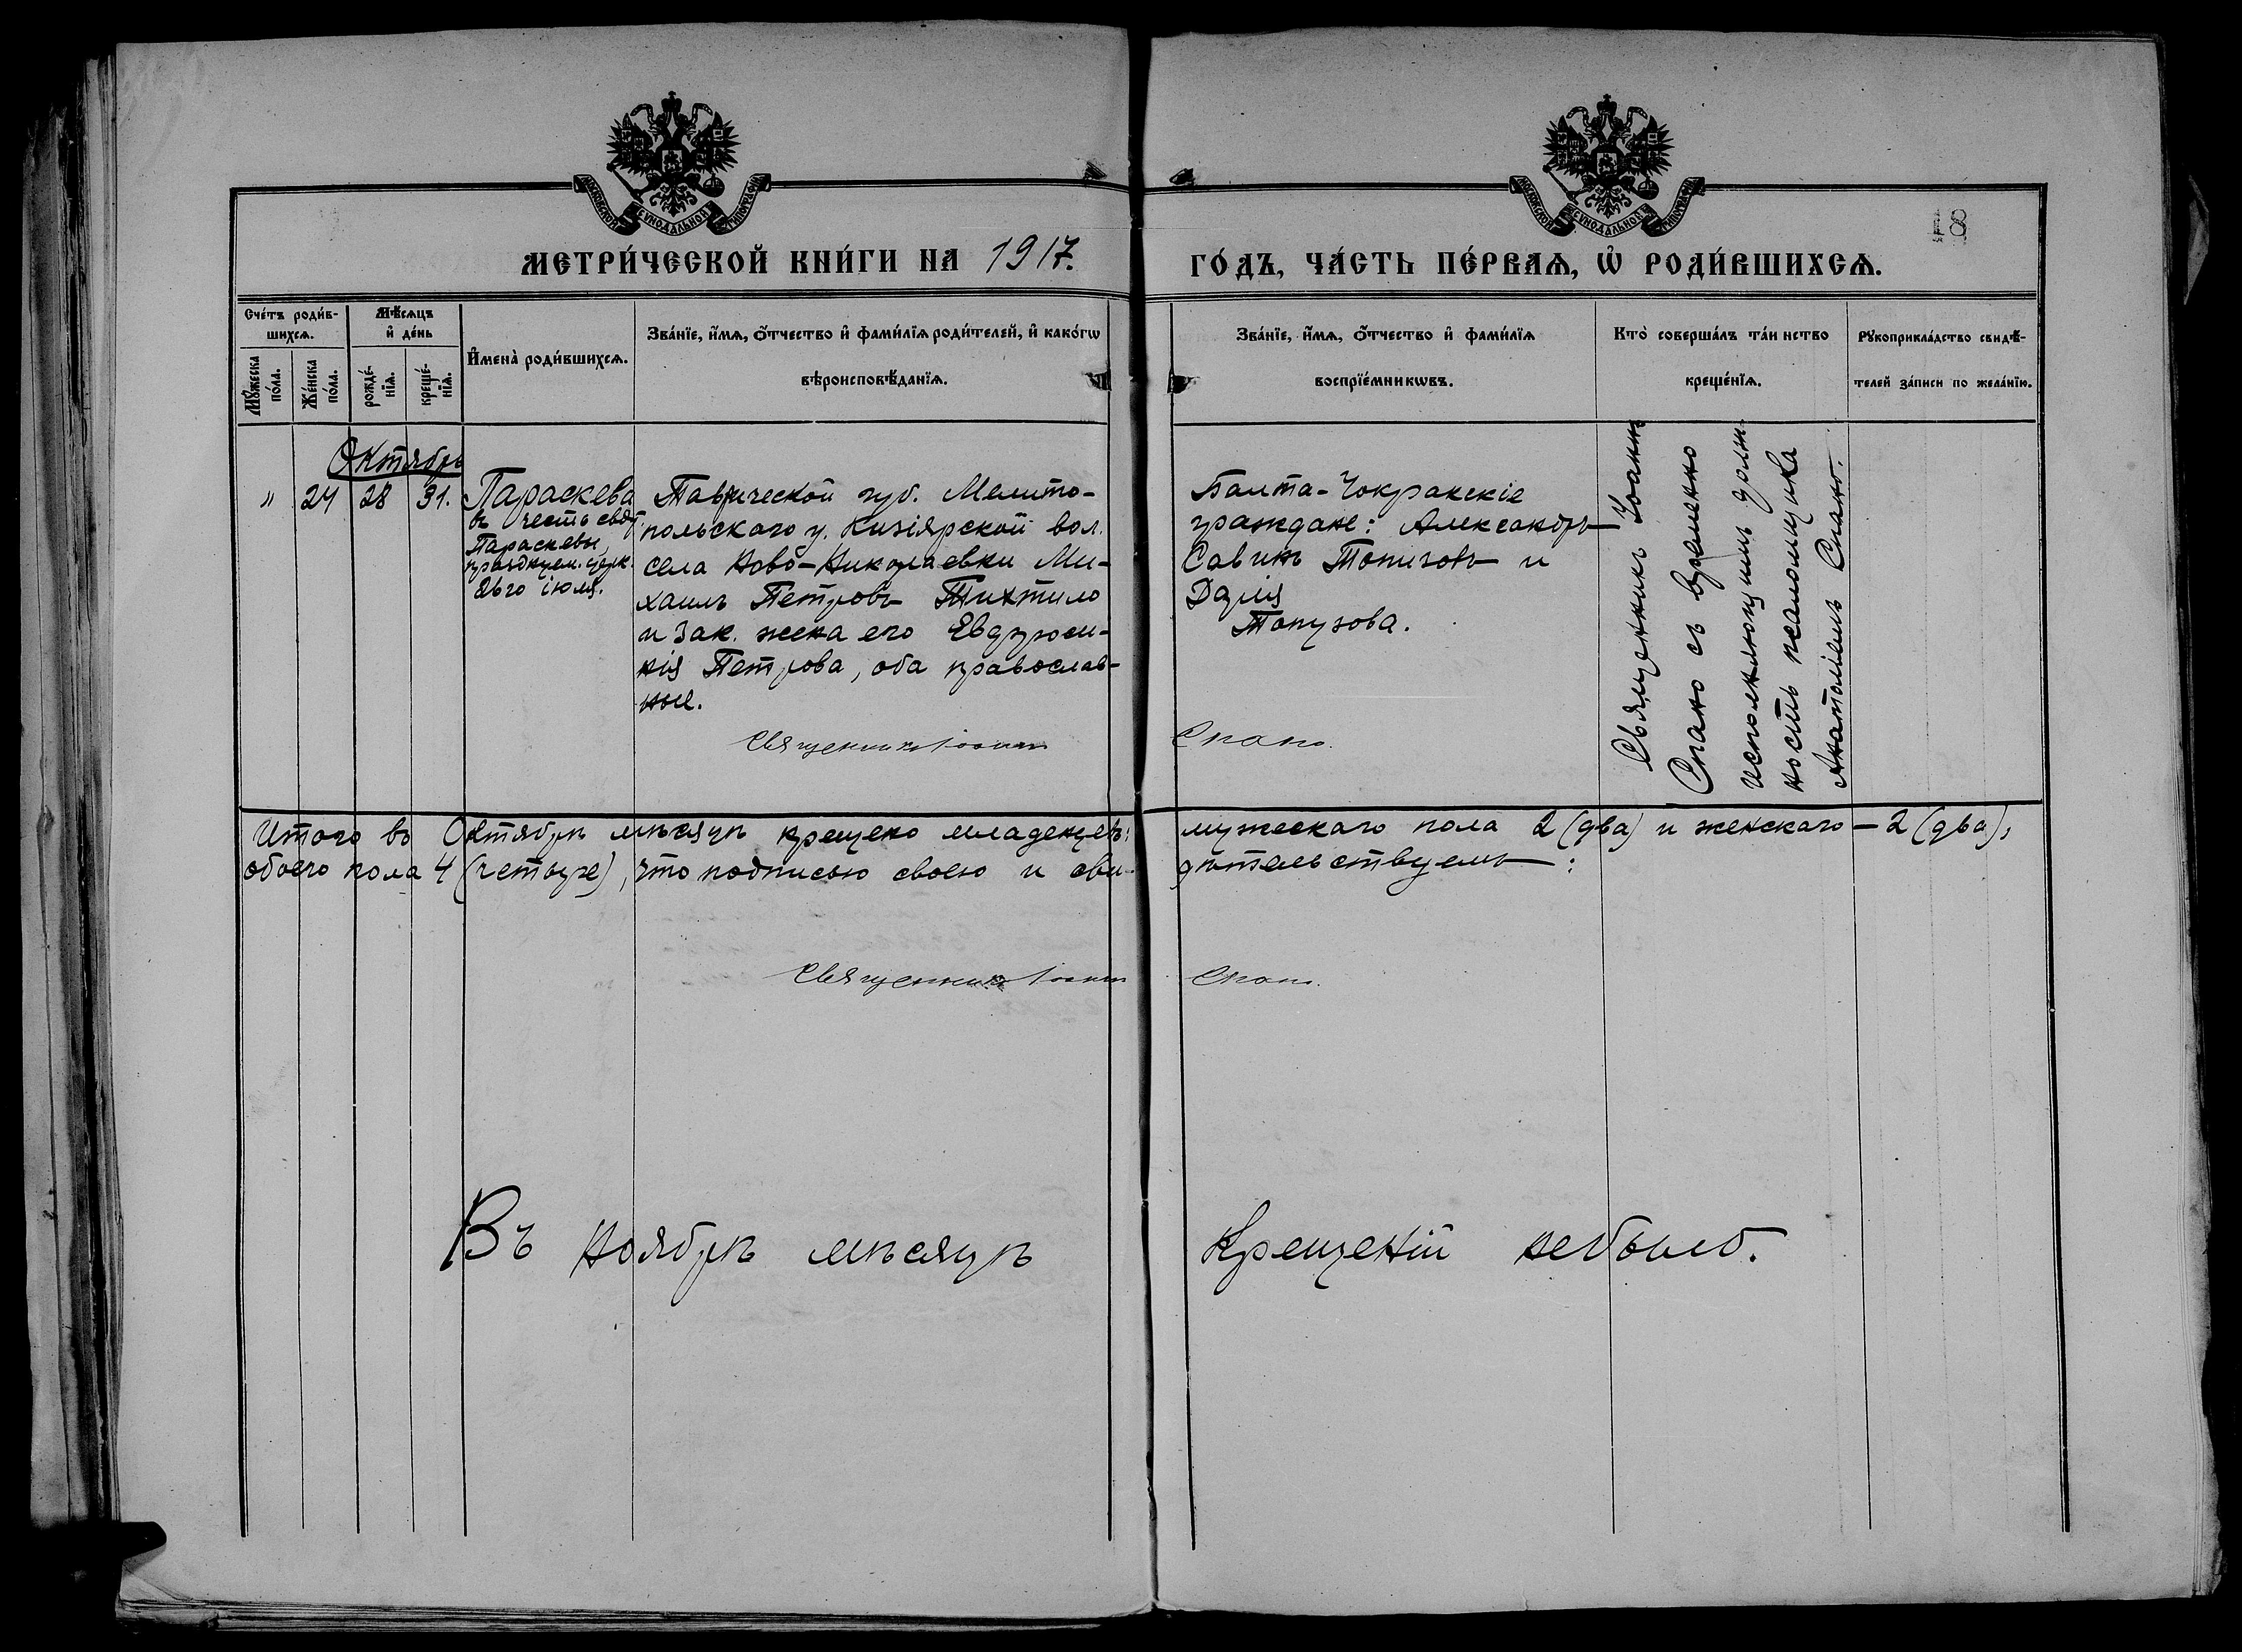 МОСКОВСКОЙ СУНОДАЛЬНОЙ ТИПОГРАФІИ
МОСКОВСКОЙ СУНОДАЛЬНОЙ ТИПОГРАФІИ
18
МЕТРИ́ЧЕСКОЙ КНИ́ГИ НА 1917.
ГО́ДЪ, ЧА́СТЬ ПЕ́РВАѦ, Ѡ҆ РОДИ́ВШИХСѦ.
Сче́тъ роди́в-
шихсѧ.
Мꙋ́жеска по́ла.
Же́нска по́ла.
Мѣ́сѧцъ
и҆ де́нь
рожде́-
нїѧ.
креще́-
нїѧ.
И҆мена̀ роди́вшихсѧ.
Зва́нїе, и҆́мѧ, ѻ҆́тчество и҆ фами́лїѧ роди́телей, и҆ како́гѡ
вѣроисповѣ́данїѧ.
Зва́нїе, и҆́мѧ, ѻ҆́тчество и҆ фами́лїѧ
воспрїе́мникѡвъ.
Кто̀ соверша́лъ та́инство
креще́нїѧ.
Рꙋкоприкла́дство свидѣ́-
телей за́писи по жела́нїю.
Октябрь
" 24 28 31.
Параскева
въ честь свят.
Параскевы,
празднуем. церк.
26го іюля.
Таврической губ. Мелито-
польскаго у. Кизіярской вол.
села Ново-Николаевки Ми-
хаилъ Петровъ Тихтило
и зак. жена его Евдроси-
нія Петрова, оба православ-
ные.
Священникъ Іоаннъ Спано.
Балта-Чокракскіе
граждане: Александръ
Савинъ Топузовъ и
Дарія
Топузова.
Священникъ Іоаннъ
Спано съ временно
исполняющимъ долж-
ность псаломщика
Анатоліемъ Спано.
Итого въ Октябрѣ мѣсяцѣ крещено младенцевъ: мужескаго пола 2 (два) и женскаго — 2 (два),
обоего пола 4 (четыре), что подписью своею и сви- дѣтельствуемъ:
Священникъ Іоаннъ Спано.
Въ Ноябрѣ мѣсяцѣ Крещеній небыло.